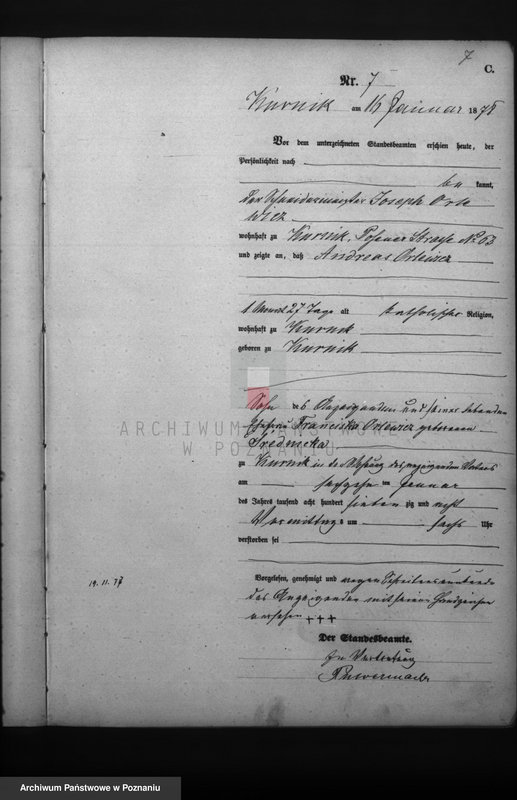 7
C.
Nr. 7
Kurnik am 16 Januar 1878
Vor dem unterzeichneten Standesbeamten erschien heute, der
Persönlichkeit nach
be kannt,
der Schneidermeister Joseph Orle
wicz
wohnhaft zu Kurnik, Posener Strasse No 63
und zeigte an, daß Andreas Orlewicz
1 Monat 27 Tage alt katholischer Religion,
wohnhaft zu Kurnik
geboren zu Kurnik
Sohn des Anzeigenden und seiner lebenden
Ehefrau Franciska Orlewicz geborenen
ARCHIWUM PAŃSTWOWE
W POZNANIU
zu Kurnik in der Wohnung des anzeigenden Vaters
am sechzehn ten Januar
des Jahrs tausend acht hundert sieben zig und acht
Vormittags um sechs Uhr
verstorben sei
Vorgelesen, genehmigt und wegen Schreibensunkunde
des Anzeigenden mit seinem Handzeichen
versehen +++
19.11.77
Der Standesbeamte.
In Vertretung
Archiwum Państwowe w Poznaniu